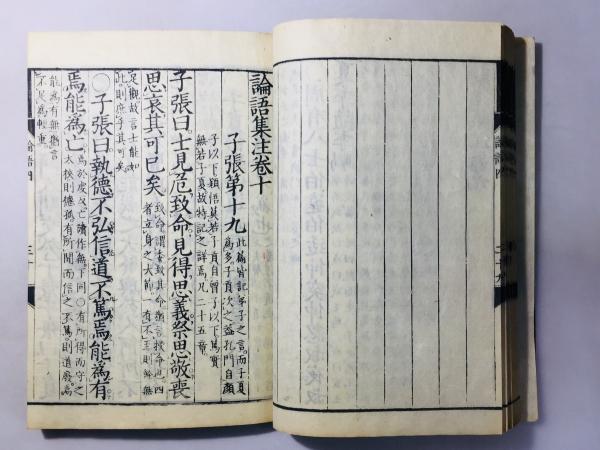 論語集注卷十
子張第十九
此篇皆記弟子之言而子夏
為多子貢次之蓋孔門自顏
子以下穎悟莫若子貢自曾子以下篤實
無若子夏故特記之詳焉凡二十五章
子張曰士見危致命見得思義祭思敬喪
思哀其可已矣
致命謂委致其命猶言授命也四
者立身之大節一有不至則餘無
足觀故言士能如
此則庶乎其可矣
○子張曰執德不弘信道不篤焉能為有
焉能為亡
焉於虔反亡讀作無下同○有所得而守之
太狹則德孤有所聞而信之不篤則道廢焉
能為有無猶言
不足為輕重
論語四
三十
論語四
二十九